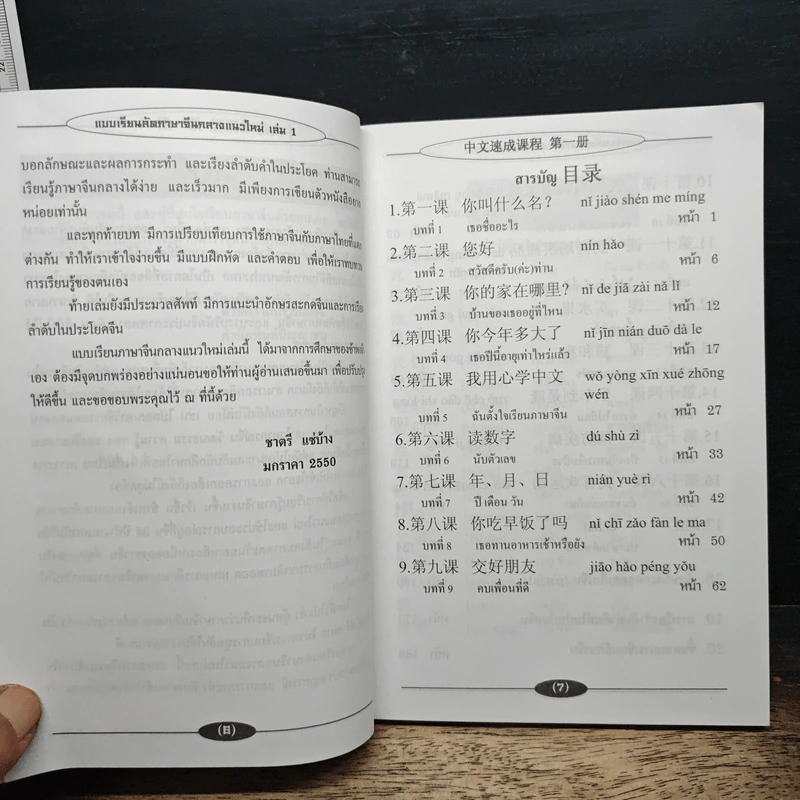 22
แบบเรียนลัดภาษาจีนกลางแนวใหม่ เล่ม 1
บอกลักษณะและผลการกระทำ และเรียงลำดับคำในประโยค ท่านสามารถ
เรียนรู้ภาษาจีนกลางได้ง่าย และเร็วมาก มีเพียงการเขียนตัวหนังสือยาก
หน่อยเท่านั้น
และทุกท้ายบท มีการเปรียบเทียบการใช้ภาษาจีนกับภาษาไทยที่
ต่างกัน ทำให้เราเข้าใจง่ายขึ้น มีแบบฝึกหัด และคำตอบ เพื่อให้เราทบทวน
การเรียนรู้ของตนเอง
ท้ายเล่มยังมีประมวลศัพท์ มีการแนะนำอักษรสะกดจีนและการ
ลำดับในประโยคจีน
แบบเรียนภาษาจีนกลางแนวใหม่เล่มนี้ ได้มาจากการศึกษาของข้าพเจ้า
เอง ต้องมีจุดบกพร่องอย่างแน่นอนขอให้ท่านผู้อ่านเสนอขึ้นมา เพื่อปรับปรุง
ให้ดีขึ้น และขอขอบพระคุณไว้ ณ ที่นี้ด้วย
ชาตรี แซ่บ้าง
มกราคา 2550
中文速成课程 第一册
สารบัญ 目录
1.第一课 你叫什么名? nǐ jiào shén me míng
บทที่ 1 เธอชื่ออะไร หน้า 1
2.第二课 您好 nín hǎo
บทที่ 2 สวัสดีครับ(ค่ะ)ท่าน หน้า 6
3.第三课 你的家在哪里? nǐ de jiā zài nǎ lǐ
บทที่ 3 บ้านของเธออยู่ที่ไหน หน้า 12
4.第四课 你今年多大了 nǐ jīn nián duō dà le
บทที่ 4 เธอปีนี้อายุเท่าไหร่แล้ว หน้า 17
5.第五课 我用心学中文 wǒ yòng xīn xué zhōng
wén
บทที่ 5 ฉันตั้งใจเรียนภาษาจีน หน้า 27
6.第六课 读数字 dú shù zì
บทที่ 6 นับตัวเลข หน้า 33
7.第七课 年、月、日 nián yuè rì
บทที่ 7 ปี เดือน วัน หน้า 42
8.第八课 你吃早饭了吗 nǐ chī zǎo fàn le ma
บทที่ 8 เธอทานอาหารเช้าหรือยัง หน้า 50
9.第九课 交好朋友 jiāo hǎo péng yǒu
บทที่ 9 คบเพื่อนที่ดี หน้า 62
(7)